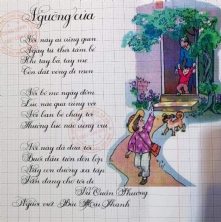 Ngưỡng cửa
Nơi này ai cũng quen
Ngay từ thời tấm bé
Khi tay bà, tay mẹ
Còn dắt vòng đi men
Nơi bố mẹ ngày đêm
Lúc nào qua cũng vội
Nơi bạn bè chạy tới
Thường lúc nào cũng vui
Nơi này đã đưa tôi
Buổi đầu tiên đến lớp
Nay con đường xa tắp
Vẫn đang chờ tôi đi
Vũ Quần Phương
Người viết